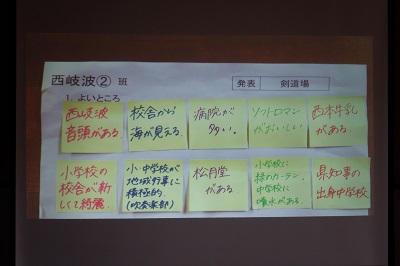 西岐波② 班
発表 剣道場
1. よいところ
西岐波
音頭がある.
校舎から
海が見える.
病院が
多い.
ソフトロマン
がおいしい
西本牛乳
がある.
小学校の
校舎が新
しくて綺麗.
小・中学校が
地域行事に
積極的.
(吹奏楽部)
松月堂
がある
小学校に
緑のカーテン.
中学校に
噴水がある.
県知事の
出身中学校